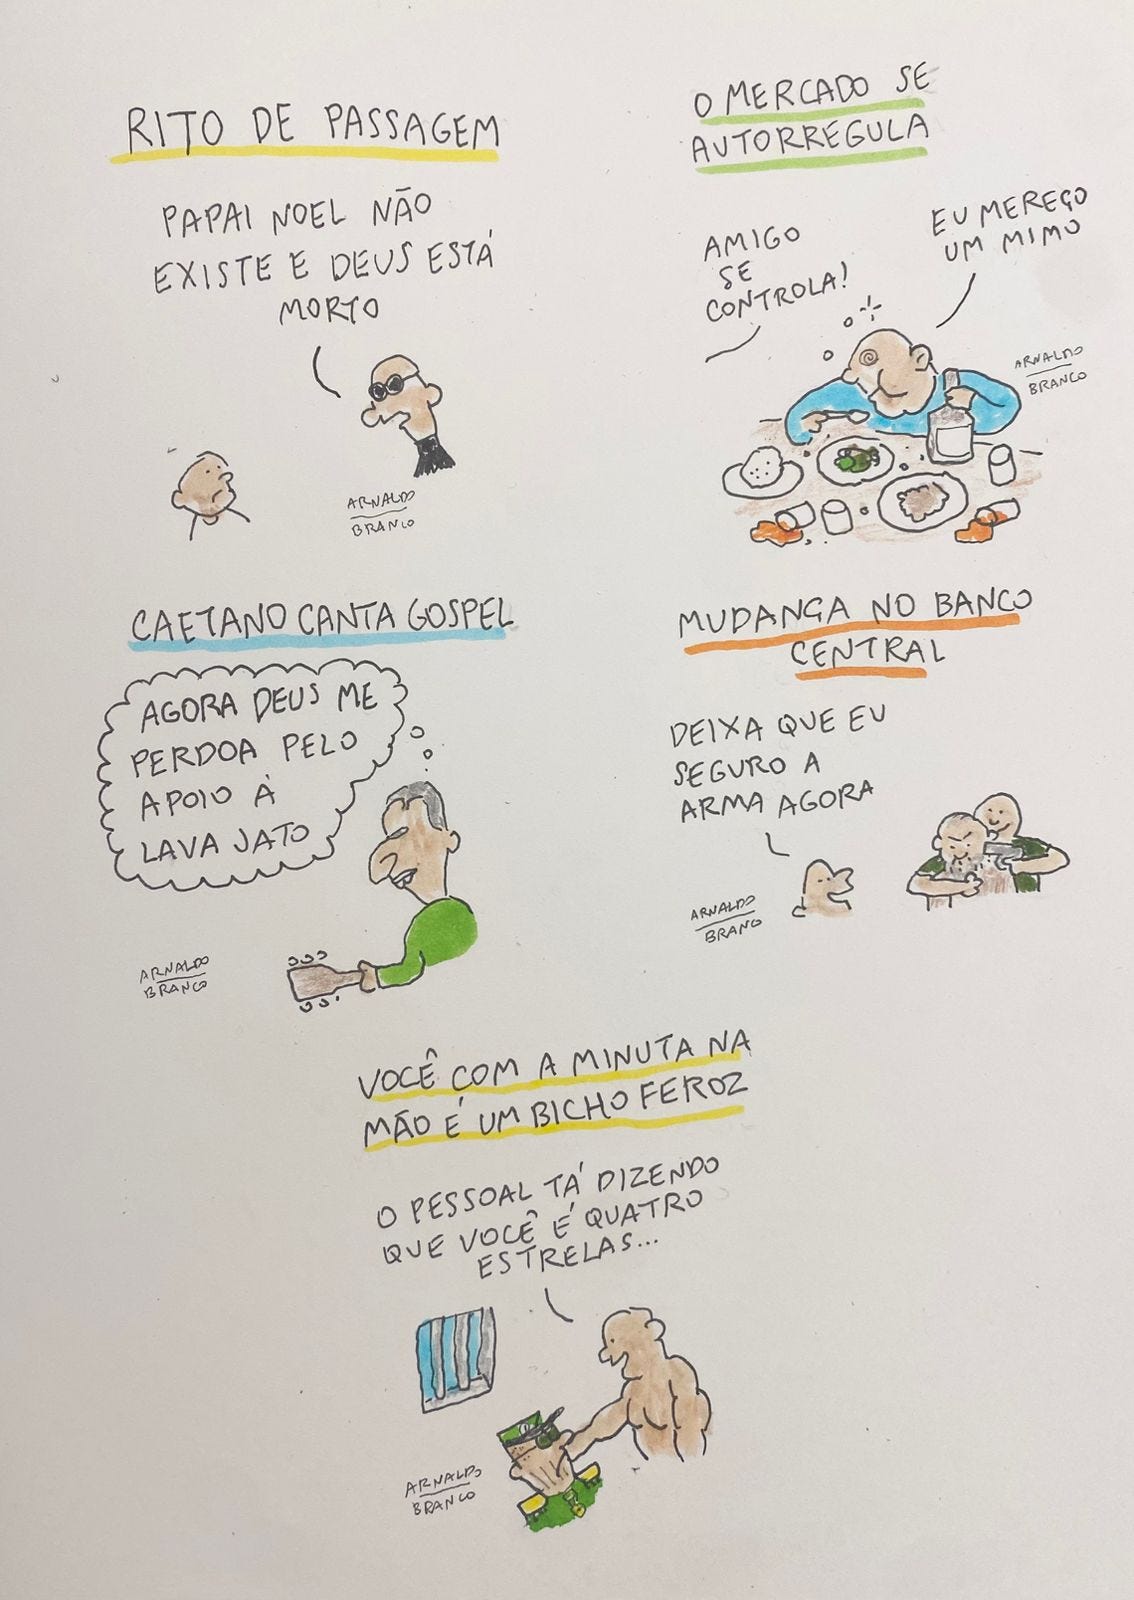 RITO DE PASSAGEM
PAPAI NOEL NÃO
EXISTE E DEUS ESTÁ
MORTO
ARNALDO
BRANCO
O MERCADO SE
AUTORREGULA
AMIGO
SE
CONTROLA!
EU MEREÇO
UM MIMO
ARNALDO
BRANCO
CAETANO CANTA GOSPEL
AGORA DEUS ME
PERDOA PELO
APOIO À
LAVA JATO
ARNALDO
BRANCO
MUDANÇA NO BANCO
CENTRAL
DEIXA QUE EU
SEGURO A
ARMA AGORA
ARNALDO
BRANCO
VOCÊ COM A MINUTA NA
MÃO É UM BICHO FEROZ
O PESSOAL TÁ DIZENDO
QUE VOCÊ É QUATRO
ESTRELAS...
ARNALDO
BRANCO